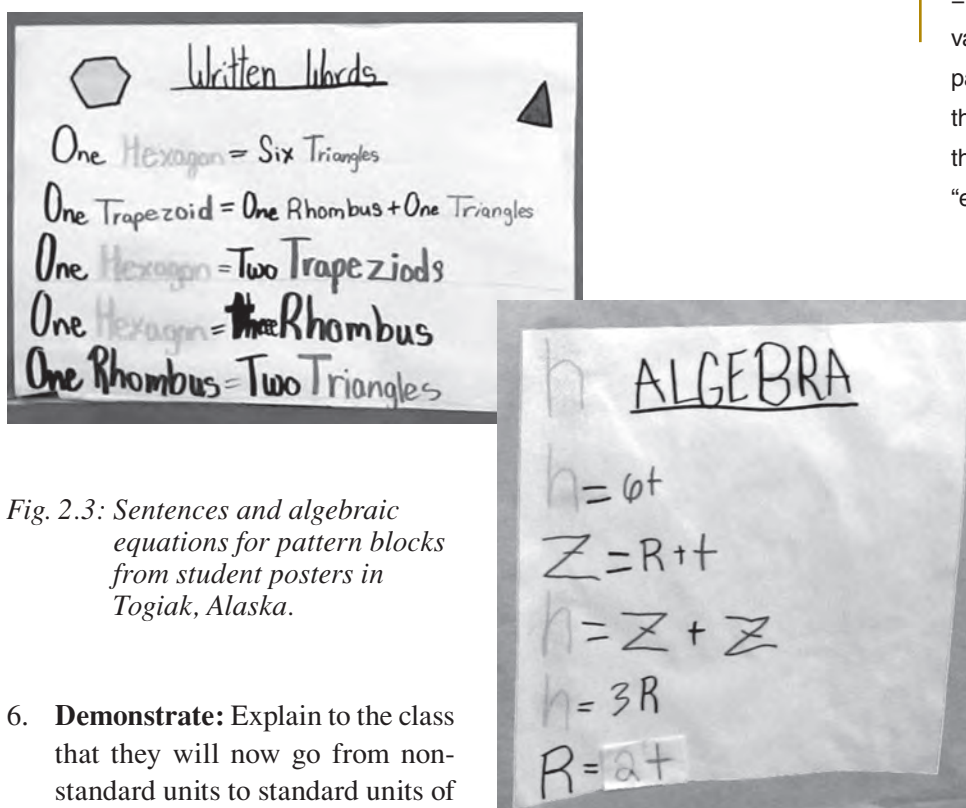 Written Words
One Hexagon = Six Triangles
One Trapezoid = One Rhombus + One Triangles
One Hexagon = Two Trapeziods
One Hexagon = three Rhombus
One Rhombus = Two Triangles
h ALGEBRA
h = 6t
Z = R + t
h = Z + Z
h = 3R
R = 2t
Fig. 2.3: Sentences and algebraic
equations for pattern blocks
from student posters in
Togiak, Alaska.
6. Demonstrate: Explain to the class
that they will now go from non-
standard units to standard units of